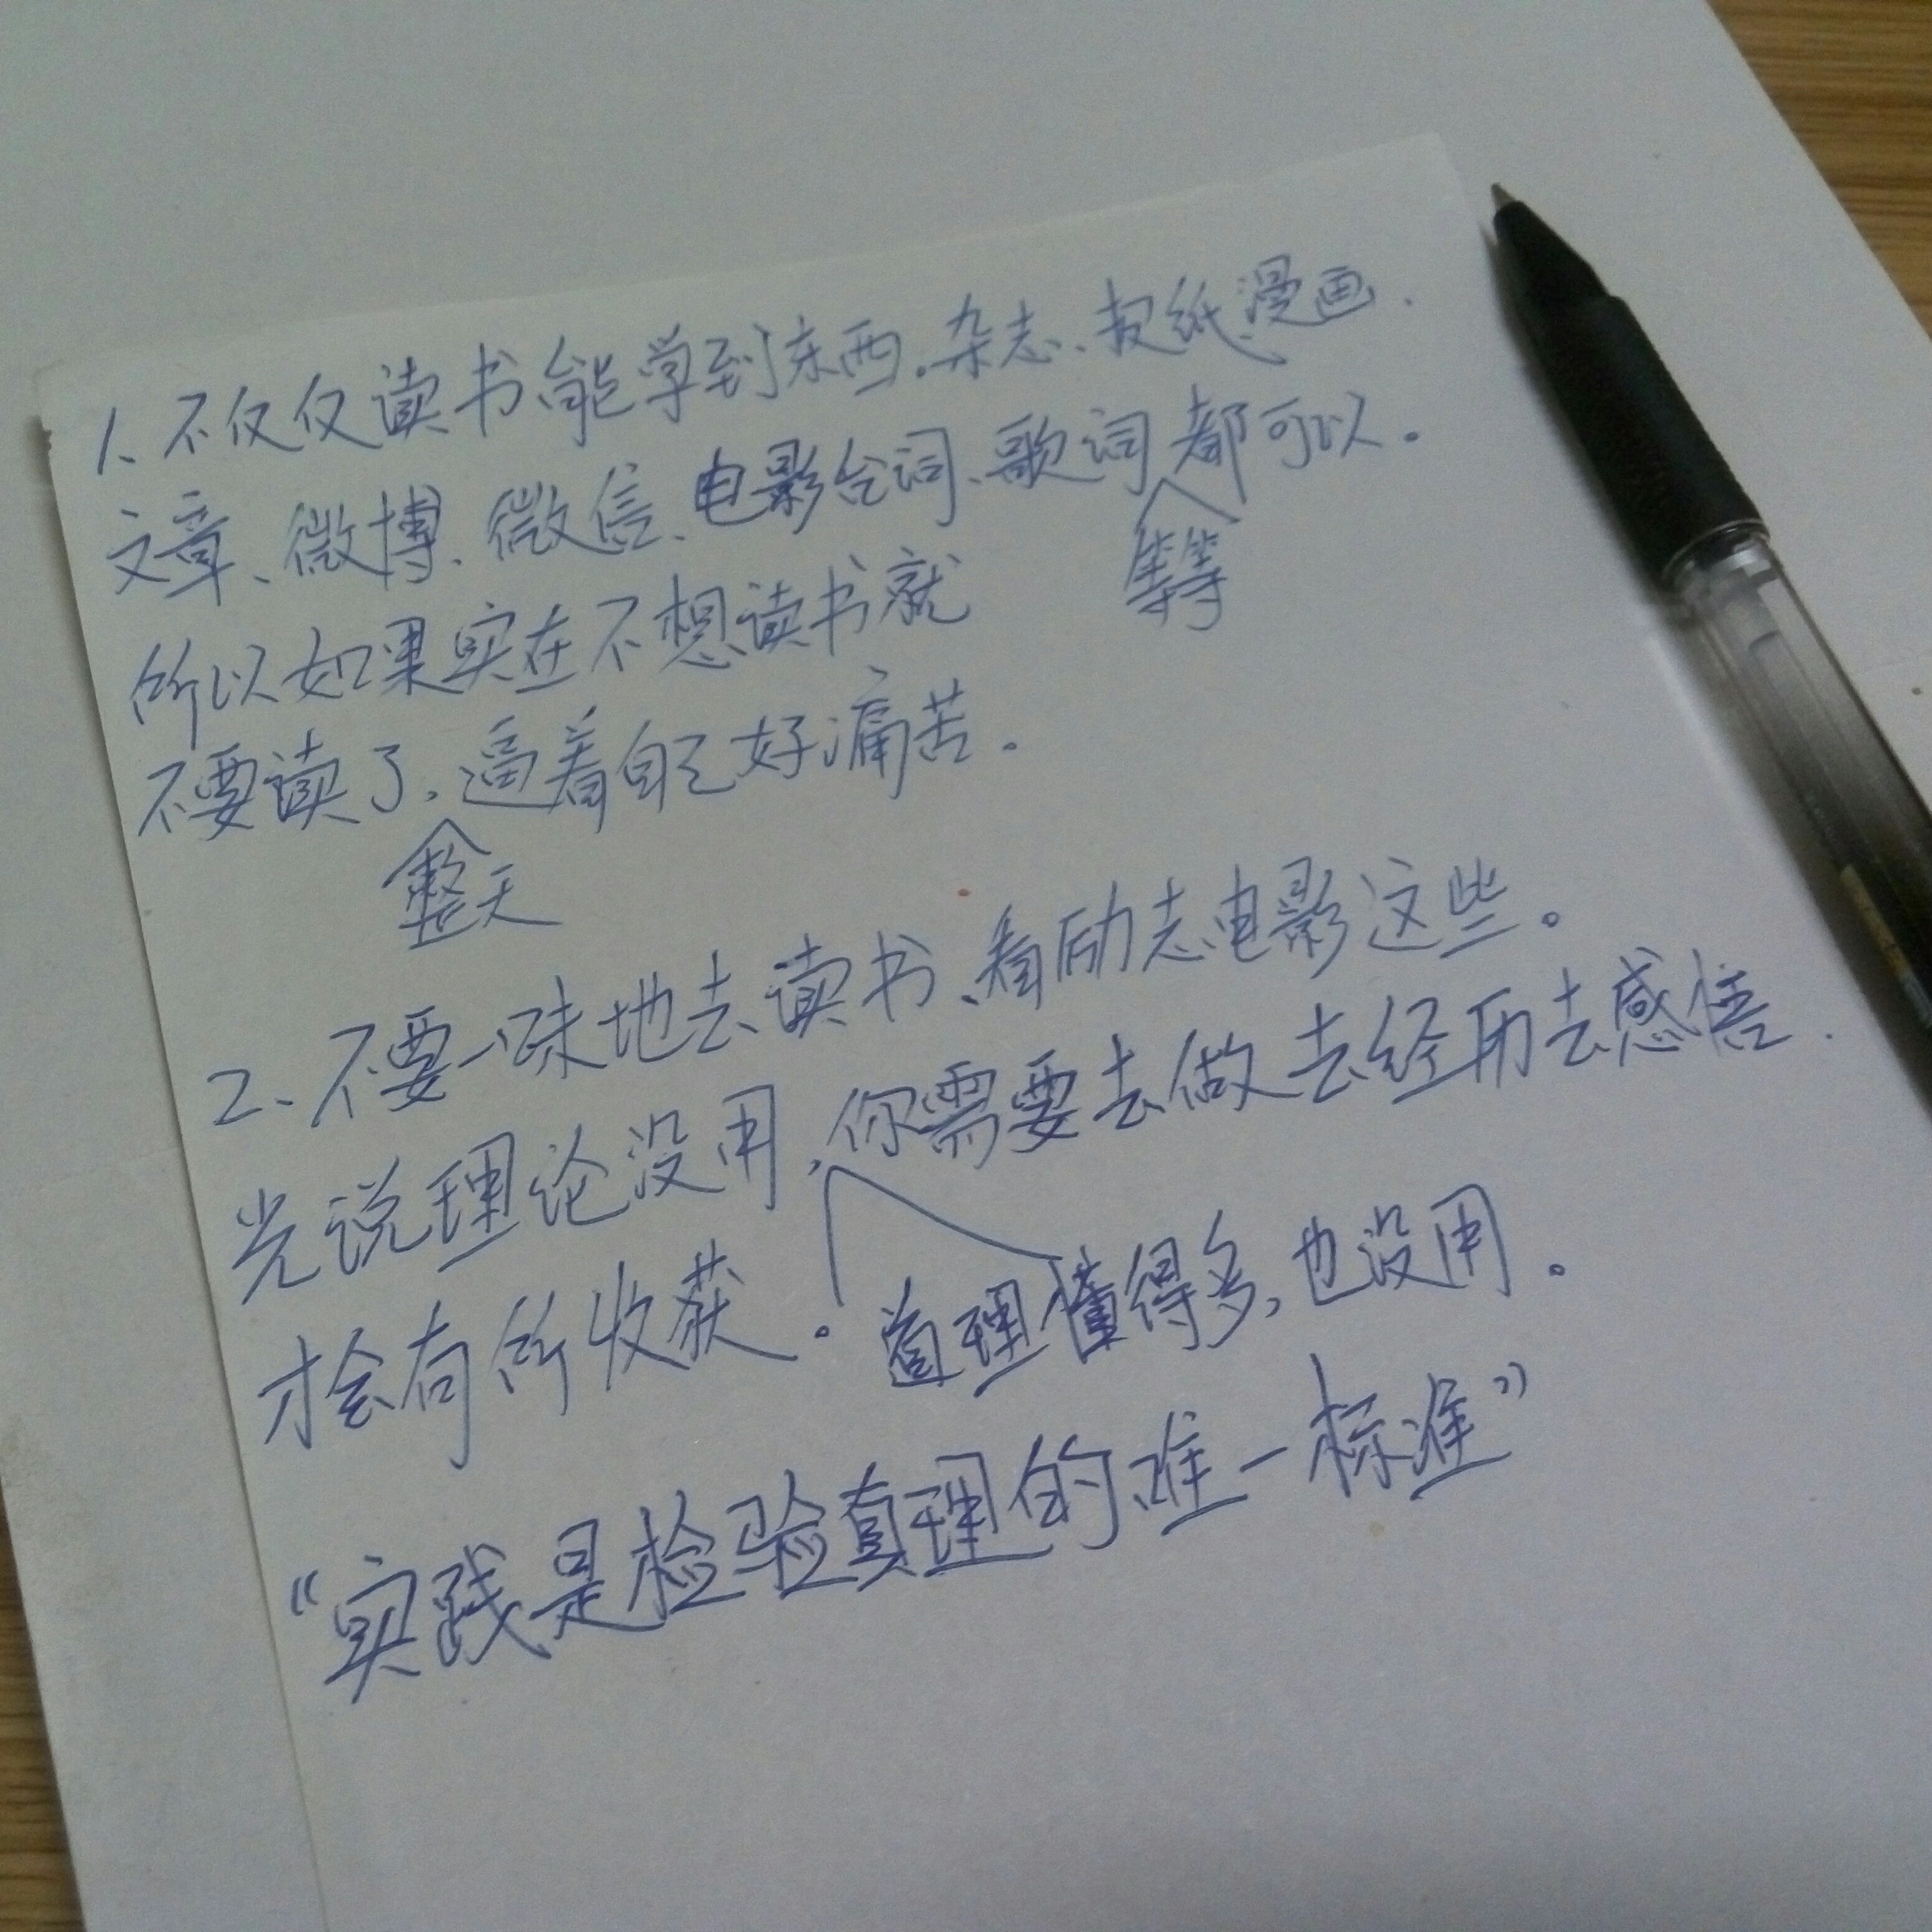 1、不仅仅读书能学到东西.杂志、报纸、漫画.
文章、微博、微信、电影台词、歌词都可以。
等等
所以如果实在不想读书就
不要读了,逼着自己好痛苦.
整天
2、不要一味地去读书、看励志电影这些。
光说理论没用,你需要去做去经历去感悟.
才会有所收获。道理懂得多,也没用。
“实践是检验真理的唯一标准”